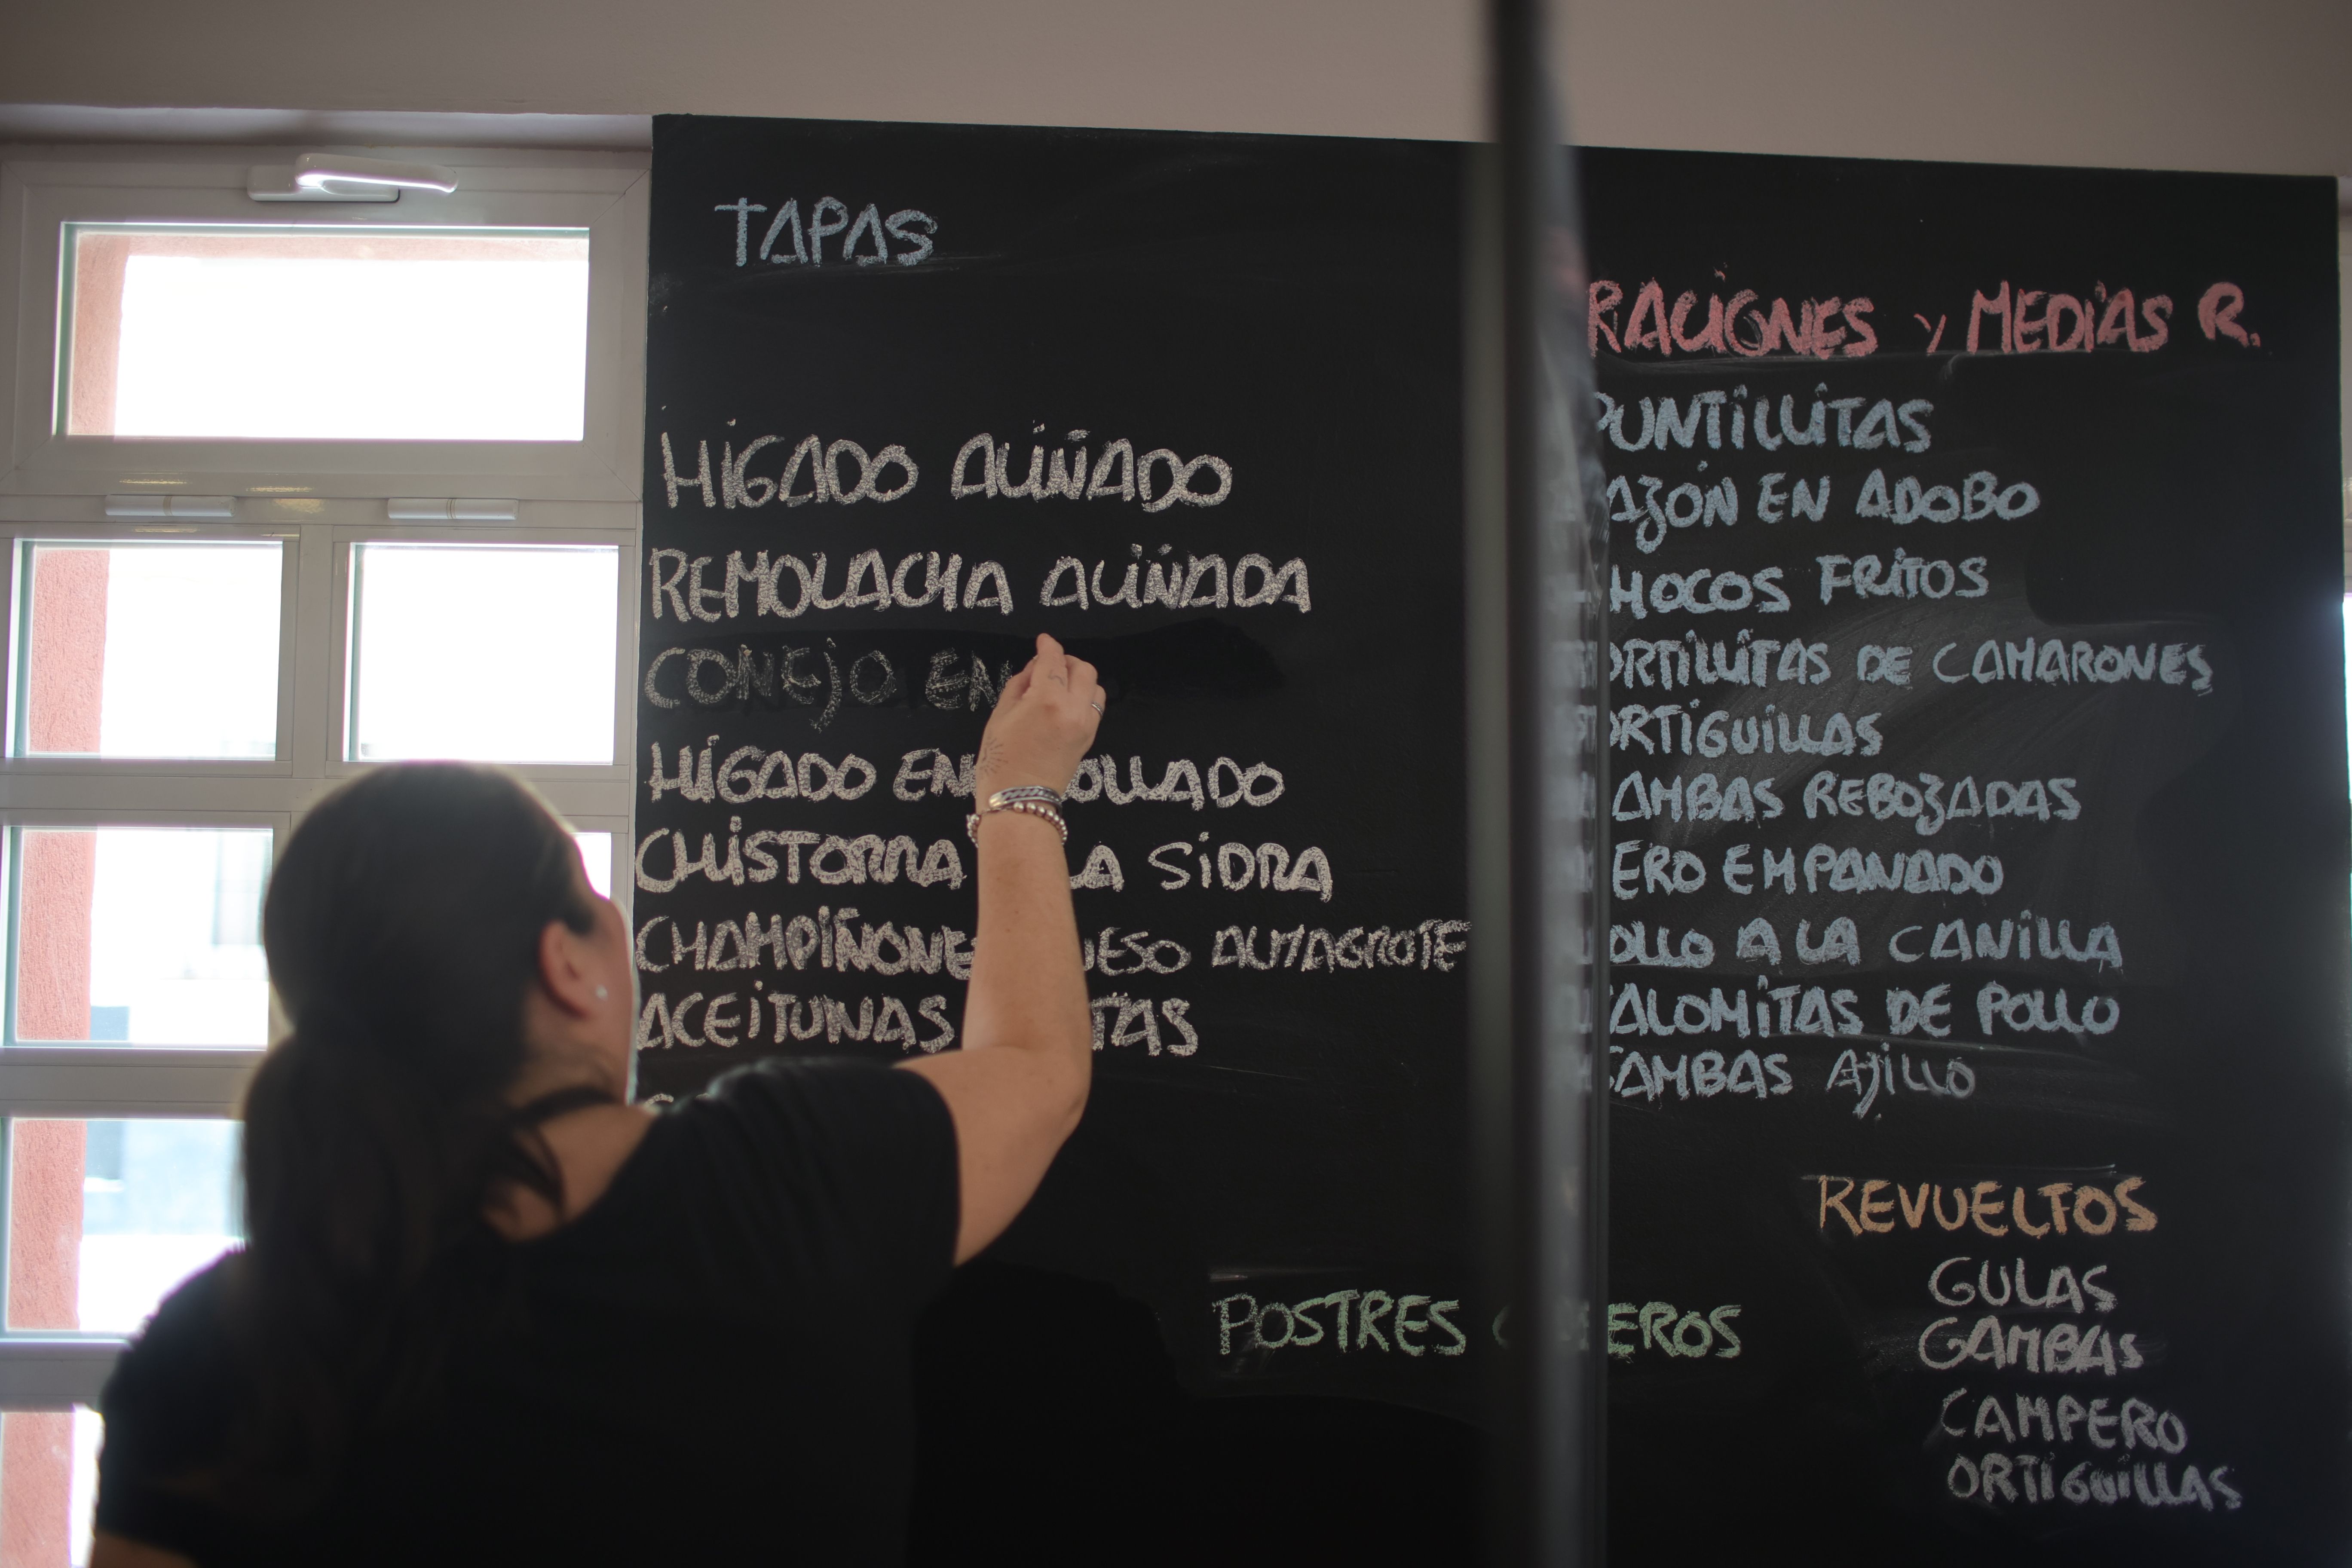 TAPAS
HÍGADO ALIÑADO
REMOLACHA ALIÑADA
CONEJO EN
HÍGADO
CHISTORRA LA SIDRA
CHAMPIÑONES QUESO ALMAGROTE
ACEITUNAS
POSTRES
RACIONES Y MEDIAS R.
PUNTILLITAS
CAZÓN EN ADOBO
CHOCOS FRITOS
TORTILLITAS DE CAMARONES
ORTIGUILLAS
GAMBAS REBOZADAS
MERO EMPANADO
POLLO A LA CANILLA
PALOMITAS DE POLLO
GAMBAS AJILLO
REVUELTOS
GULAS
GAMBAS
CAMPERO
ORTIGUILLAS